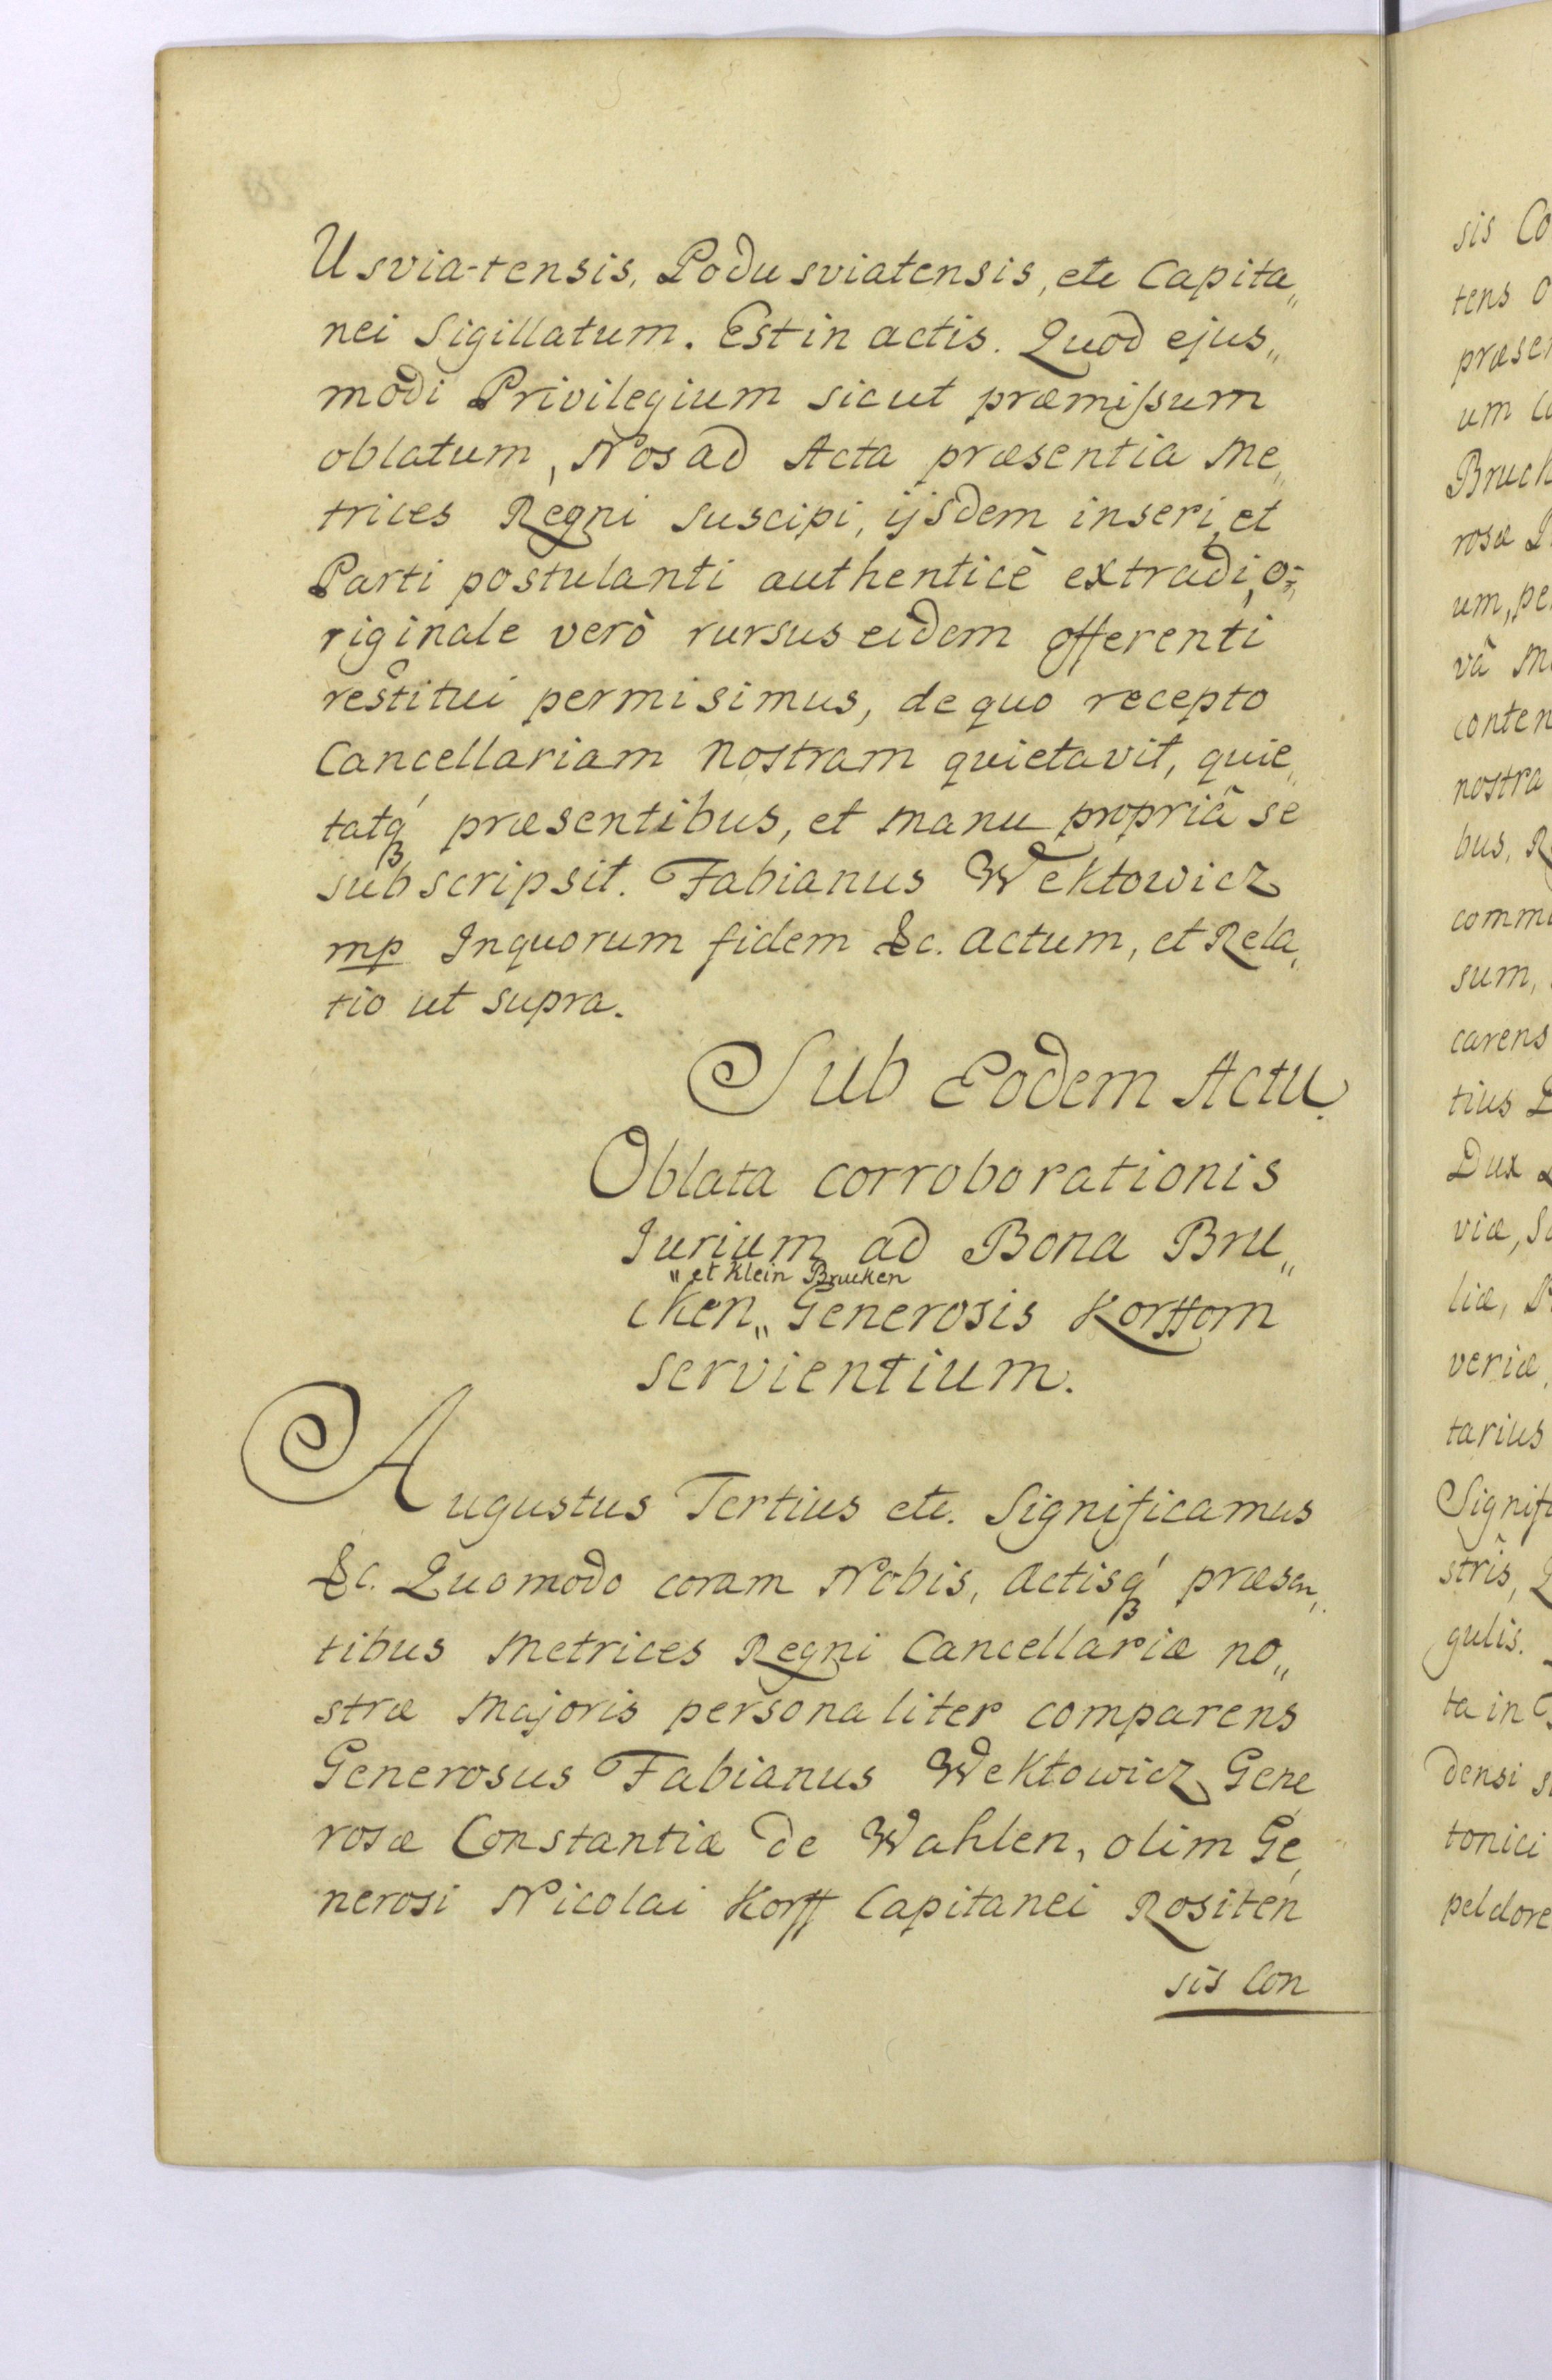 Usvia-tensis, Podusviatensis, etc Capita„
nei Sigillatum. Est in actis. Quod ejus„
modi Privilegium sicut præmissum
oblatum, Nos ad Acta præsentia Me„
trices Regni suscipi, ijsdem inseri, et
Parti postulanti authenticè extradi, o„
riginale verò rursus eidem offerenti
restitui permisimus, de quo recepto
Cancellariam nostram quietavit, quie„
tatq́ præsentibus, et manu propriâ se
subscripsit. Fabianus Wektowicz
mp In quorum fidem &c. actum, et Rela„
tio ut supra.
Sub Eodem Actu.
Oblata corroborationis
Jurium ad Bona Bru„
„et Klein Brucken
cken„ Generosis Korffom
servientium.
Augustus Tertius etc. Significamus
&c. Quomodo coram Nobis, actisq́ præsen„
tibus Metrices Regni Cancellariæ no„
stræ Majoris personaliter comparens
Generosus Fabianus Wektowicz Gene„
rosæ Constantiæ de Wahlen, olim Ge„
nerosi Nicolai Korff Capitanei Rositen
sis Con
sis Co
tens o
præsen
um
Bruck
rosæ
um, pe
vâ M
conten
nostra
bus, R
comm
sum,
carens
tius
Dux
viæ, S
liæ, P
veriæ,
tarius
Signifi
stris, Q
gulis.
ta in
densi s
tonici
peldore